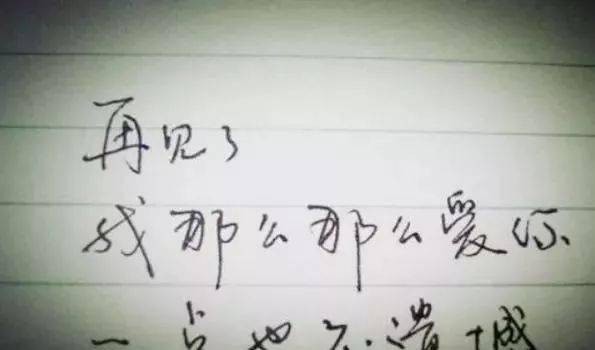 再见了
我那么那么爱你
一点也不